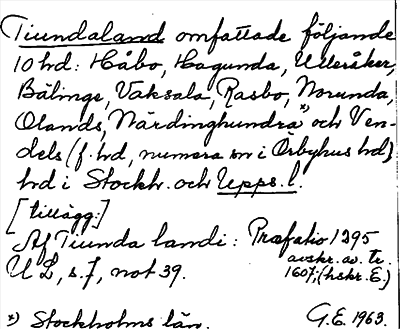 Tiundaland omfattade följande
10 hd: Håbo, Hagunda, Ulleråker,
Bälinge, Vaksala, Rasbo, Norunda,
Olands, Närdinghundra*) och Ven-
dels (f. hd, numera sn i Örbyhus hd)
hd i Stockh. och Upps. l.
[tillägg:]
Af Tiunda landi: Præfatio 1295
avskr. av tr.
U L, s. 7, not 39.
1607; (hskr. E.)
*) Stockholms län.
G.E. 1963.